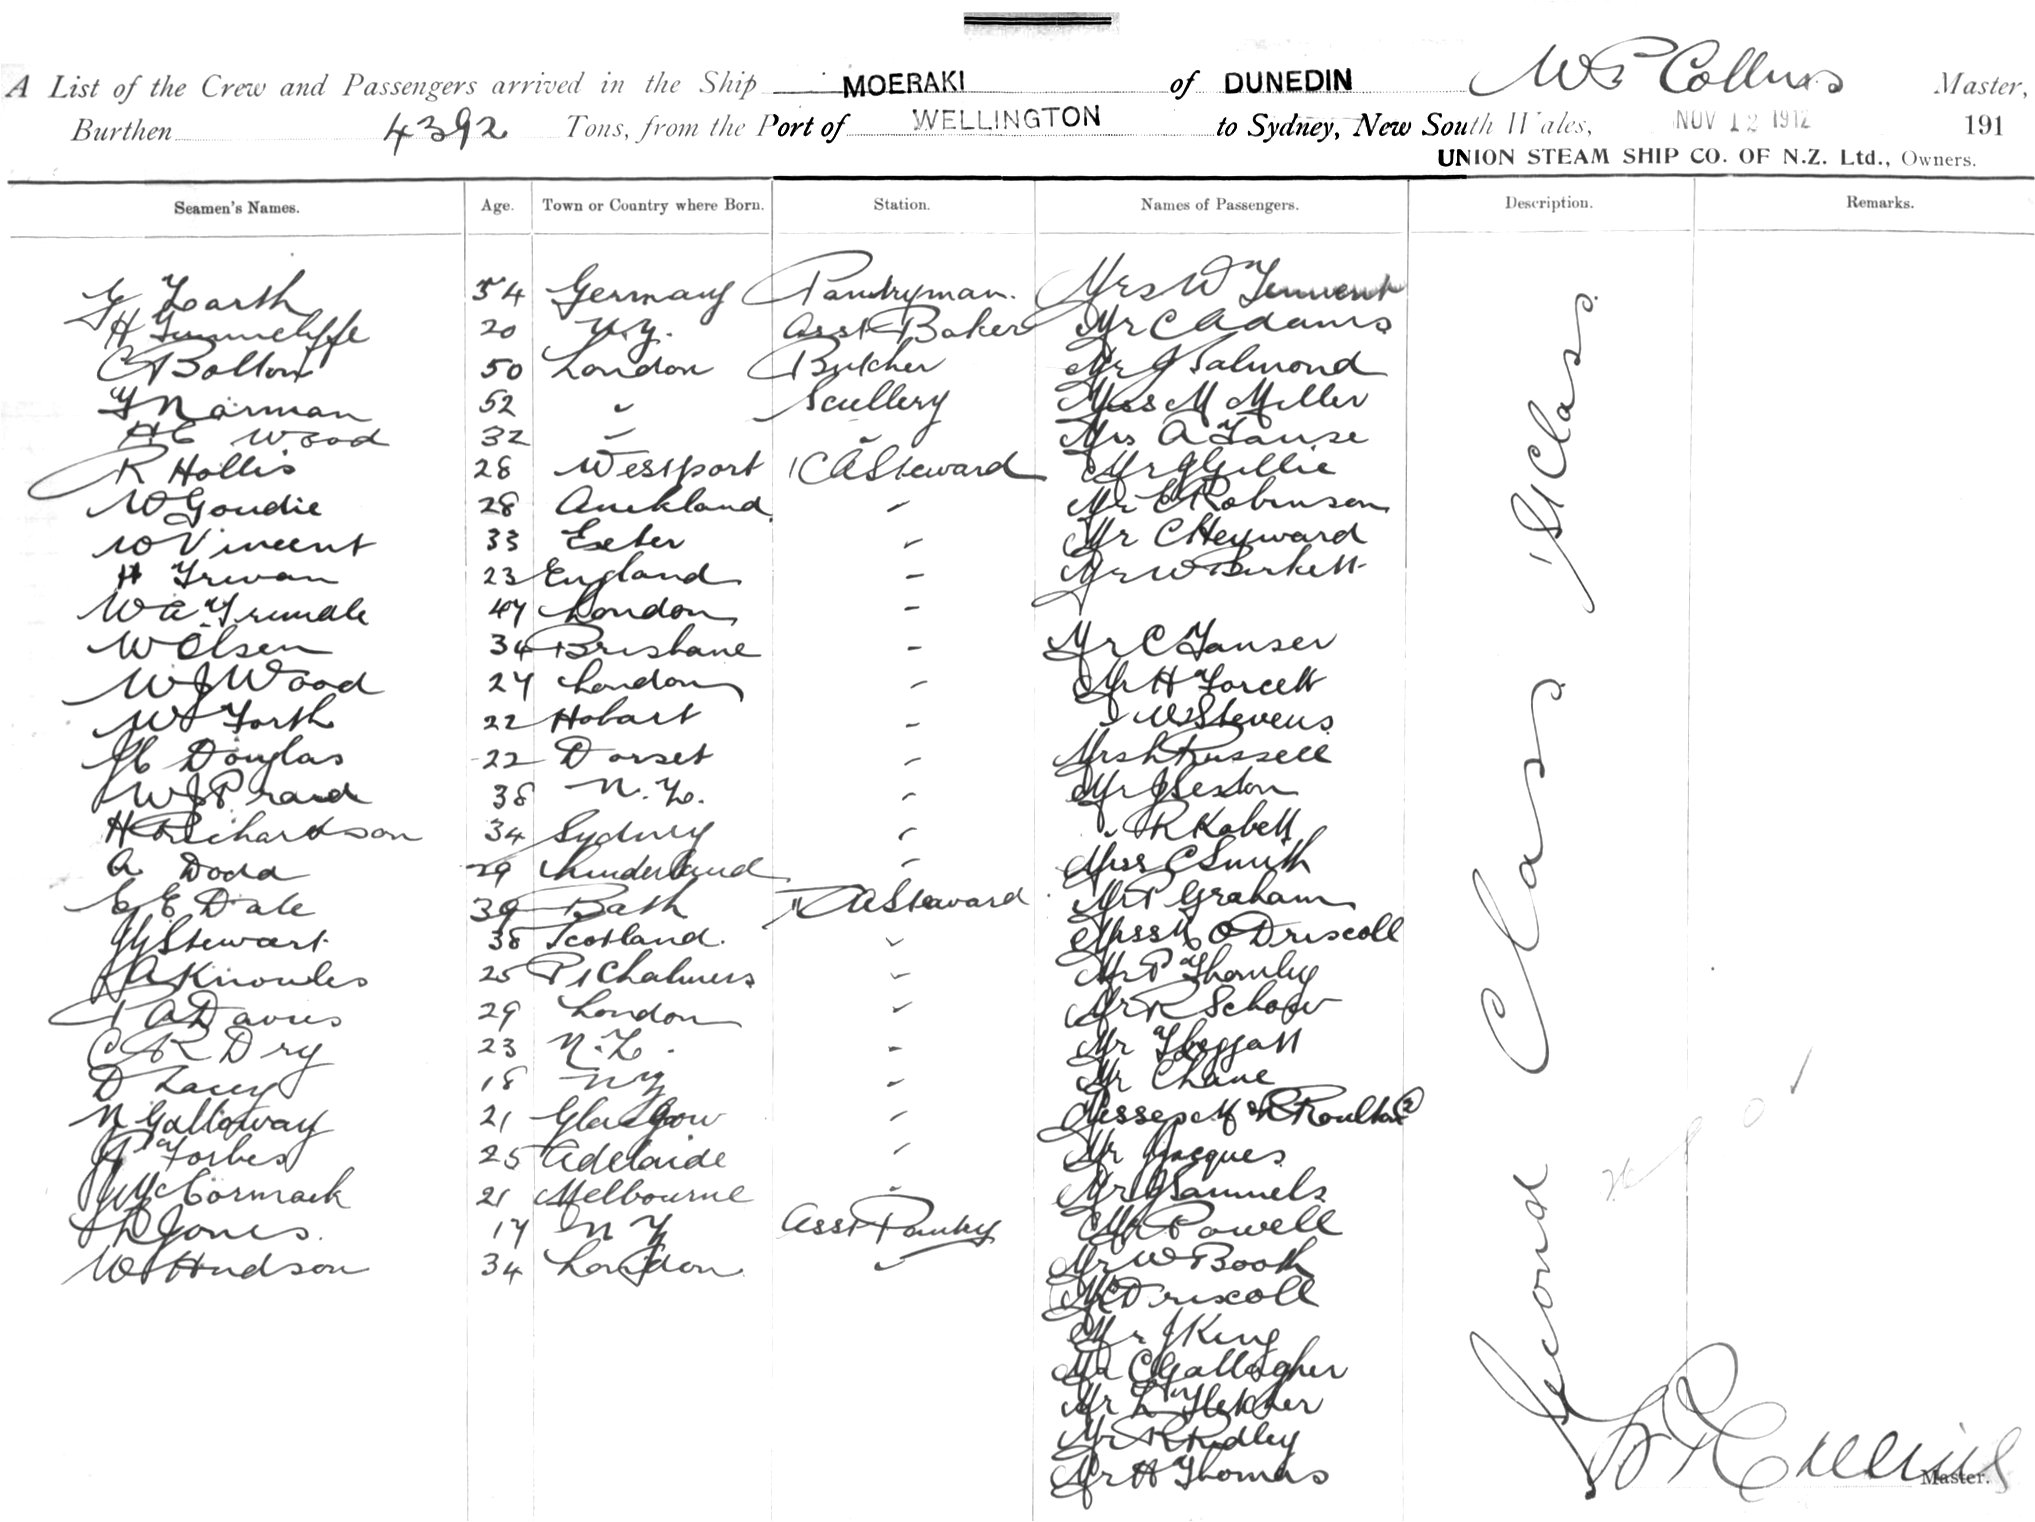 A List of the Crew and Passengers arrived in the Ship MOERAKI of DUNEDIN W P Collins Master,
Burthen 4392 Tons, from the Port of WELLINGTON to Sydney, New South Wales, NOV 12 1912 191
UNION STEAM SHIP CO. OF N.Z. Ltd., Owners.
Seamen's Names. Age. Town or Country where Born. Station. Names of Passengers. Description. Remarks.
54 Germany Pantryman. Mrs W
H 20 N.Z. Asst Baker Mr C Adams
C Bolton 50 London Butcher Mr J Salmond
Norman 52 " Scullery Miss M Miller
H E Wood 32 " " Mrs A
R Hollis 28 Westport 1 C A Steward Mr J Gillie
W Goudie 28 Auckland " Mr E Robinson
W Vincent 33 Exeter " Mr C Heyward
H 23 England " Mr W Birkett
W A 47 London "
W Olsen 34 Brisbane " Mr C
W J Wood 27 London " Mr H
W Forth 22 Hobart " " W Stevens
Douglas 22 Dorset " Mrs L Russell
W J 38 N.Z. " Mr J Sexton
H Richardson 34 Sydney " " R Kabell
A Dodd 29 Sunderland " Miss C Smith
E E Dale 39 Bath 2 A Steward Mr P Graham
J Stewart 38 Scotland. " Miss M O Driscoll
A Knowles 25 Pt Chalmers " Mr P
A Davies 29 London " Mr R
C R Dry 23 N.Z. " Mr
D Lacey 18 NZ " Mr Chane
N Galloway 21 Glasgow " Misses M & R 2
Forbes 25 Adelaide " Mr Jacques
J McCormack 21 Melbourne " Mr J Samuels
L Jones. 17 NZ Asst Pantry Mr Powell
W Hudson 34 London " Mr W Booth
Mr Driscoll
Mr J King
Mr C Gallagher
Mr L Fletcher
Mr R Ridley
Mr H Thomas
1st Class
Second Class
W P Collins
Master.